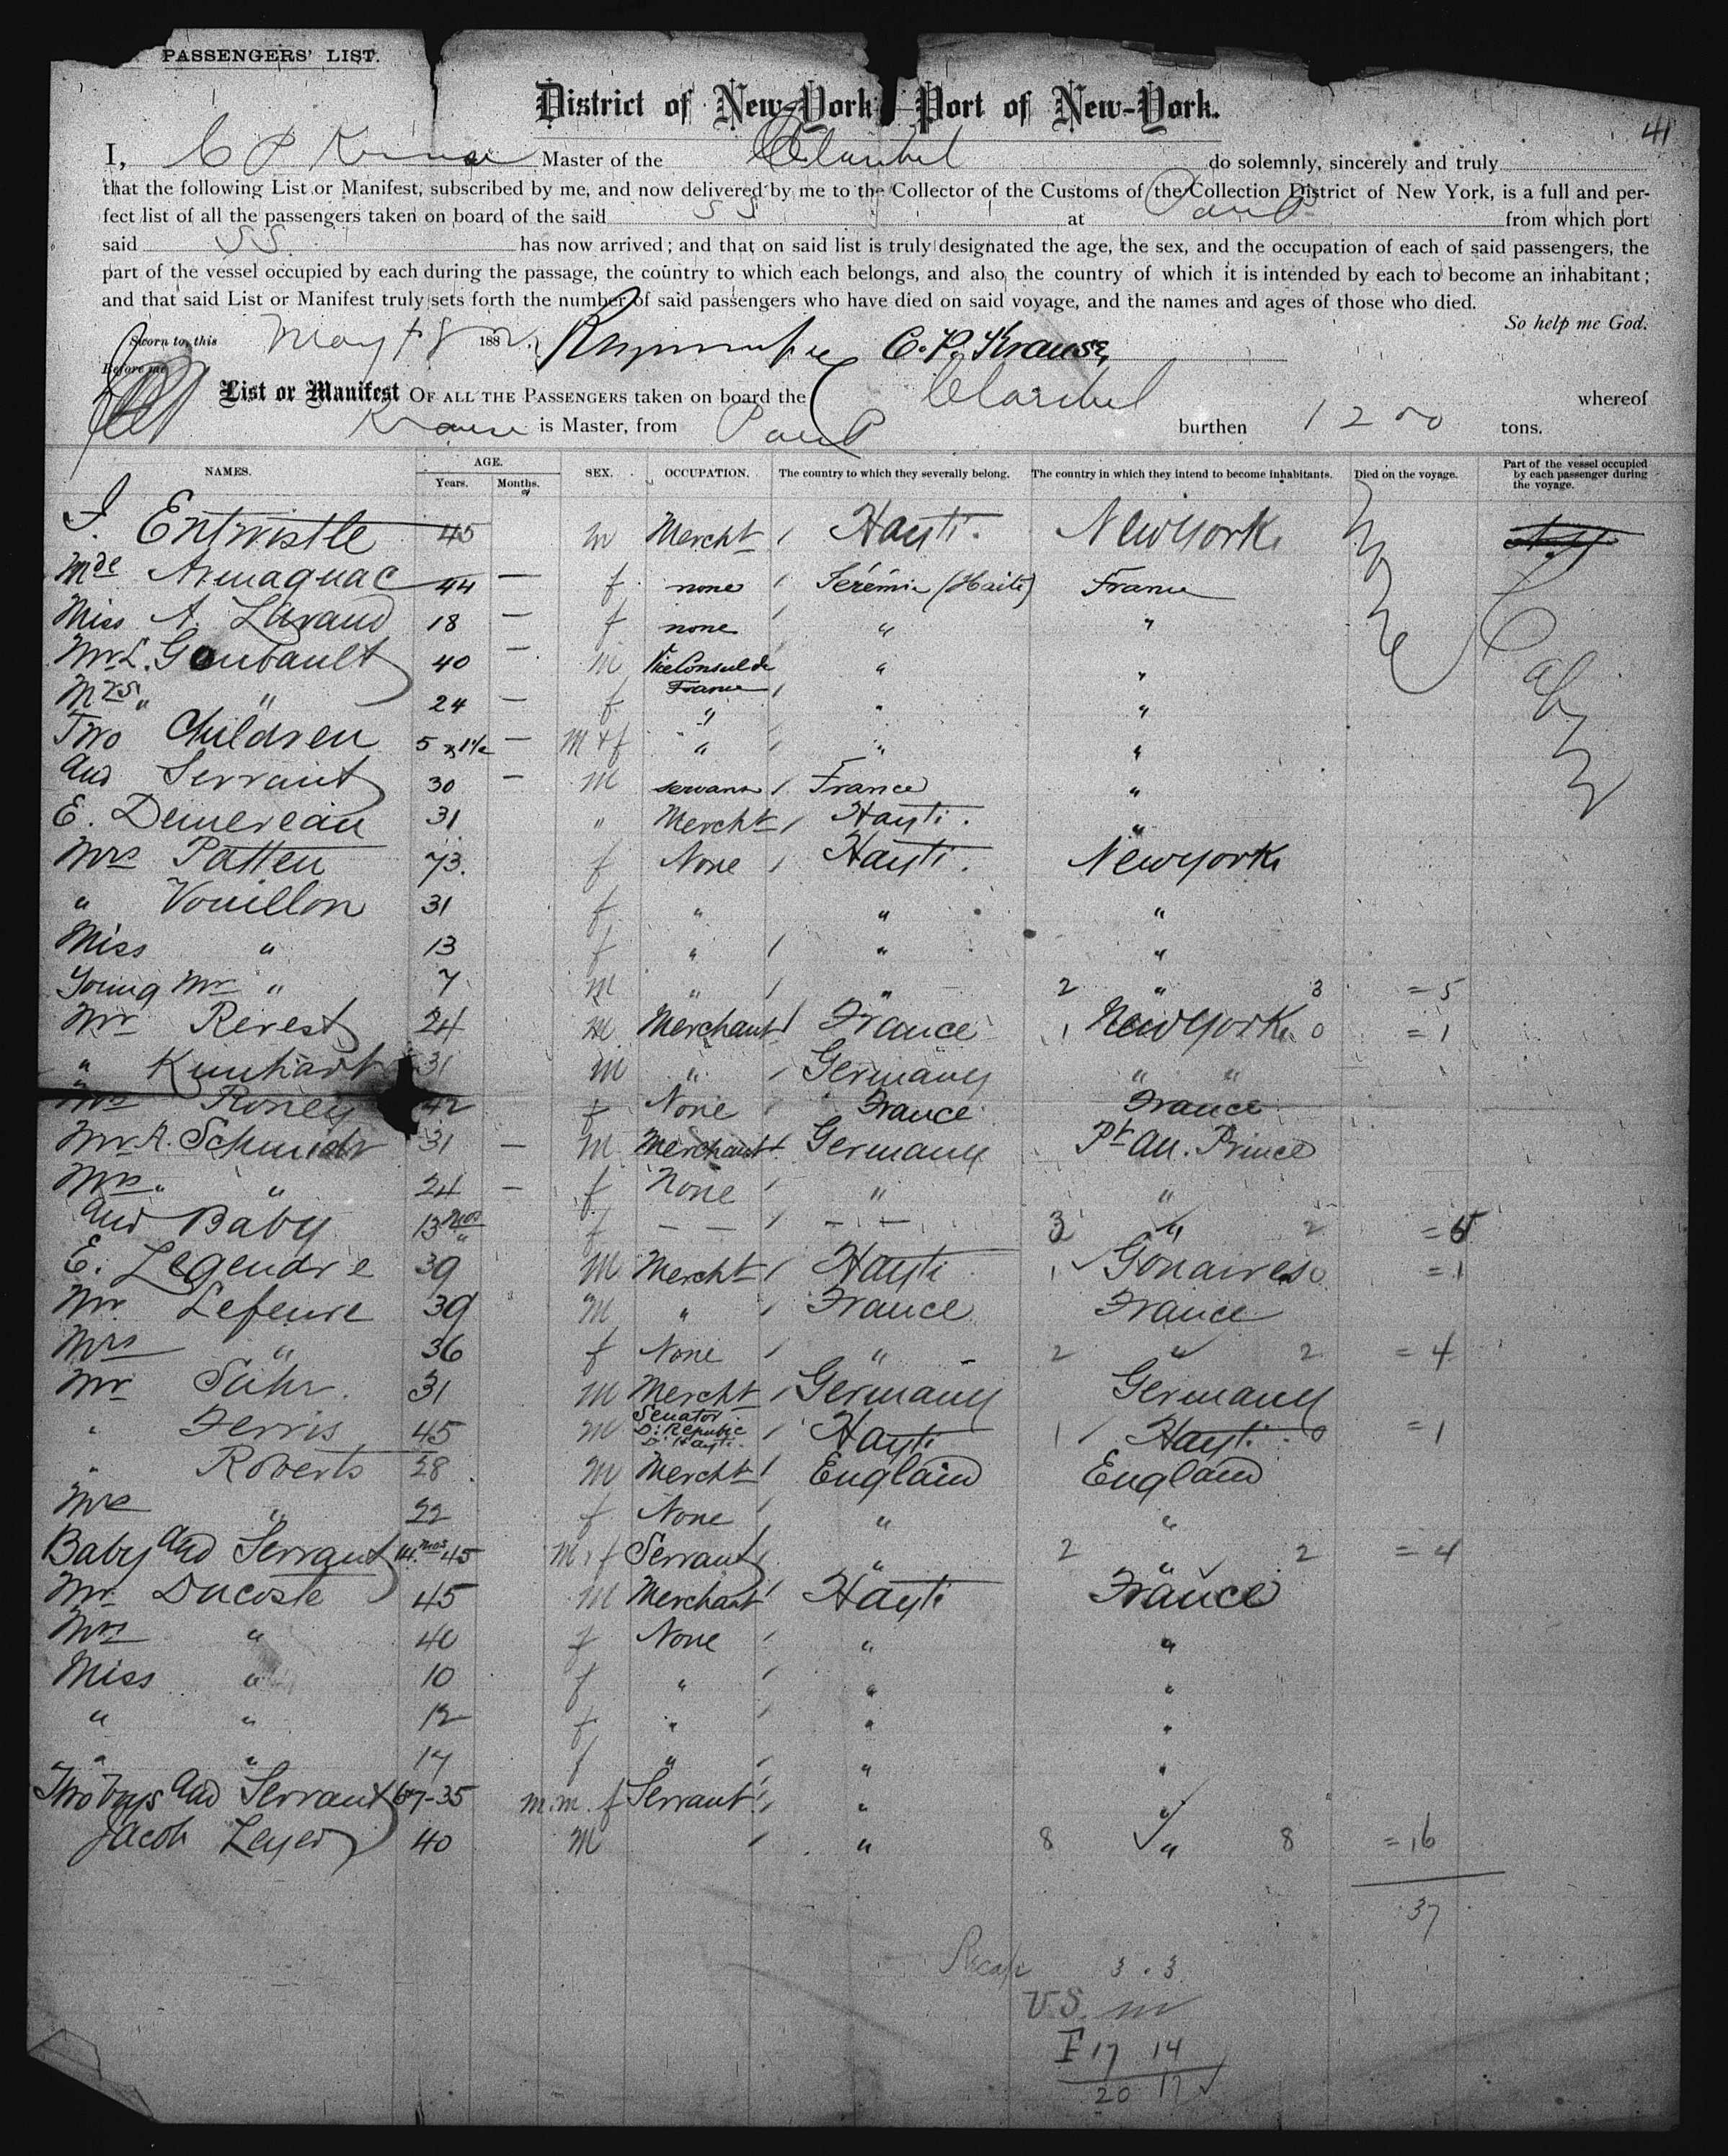 PASSENGERS' LIST.
District of New-York Port of New-York.
41
I, C P Krause Master of the Claribel do solemnly, sincerely and truly
that the following List or Manifest, subscribed by me, and now delivered by me to the Collector of the Customs of the Collection District of New York, is a full and per-
fect list of all the passengers taken on board of the said SS at Port P from which port
said SS. has now arrived; and that on said list is truly designated the age, the sex, and the occupation of each of said passengers, the
part of the vessel occupied by each during the passage, the country to which each belongs, and also the country of which it is intended by each to become an inhabitant;
and that said List or Manifest truly sets forth the number of said passengers who have died on said voyage, and the names and ages of those who died.
So help me God.
Sworn to, this May 8 1882. C. P. Krause
Before me
List or Manifest OF ALL THE PASSENGERS taken on board the Claribel whereof
Krause is Master, from Port P burthen 1200 tons.
NAMES. AGE. Years. Months. SEX. OCCUPATION. The country to which they severally belong. The country in which they intend to become inhabitants. Died on the voyage. Part of the vessel occupied by each passenger during the voyage.
J. Entwistle 45 m Mercht / Hayti. New York
Mde Armagnac 44 — f none / Jérémie (Haiti) France
Miss A. Lavaud 18 — f none " "
Mr L. Goubault 40 — m Vice Consul de France / " "
Mrs " " 24 — f " " "
Two Children 5 & 1½ — M & f " " "
and Servant 30 — m servant / France "
E. Demereau 31 " Mercht / Hayti. "
Mrs Patten 73. f None / Hayti. New York
" Vouillon 31 f " " "
Miss " 13 f " / " "
Young Mr " 7 m " / " 2 " 3 = 5
Mr Revest 24 m Merchant / France 1 New York 0 = 1
" Kunhart 31 m " / Germany " "
Mrs Roney 42 f None / France France
Mr A. Schmidt 31 — m Merchant / Germany Pt au. Prince
Mrs " " 24 — f None / " "
and Baby 13 mos f — — / — — 3 " 2 = 5
E. Legendre 39 m Mercht / Hayti 1 Gonaives 0 = 1
Mr Lefeuvre 39 m " / France France
Mrs " 36 f None / " 2 " 2 = 4
Mr Suhr. 31 m Mercht / Germany Germany
" Ferris 45 m Senator D: Republic D: Hayti. / Hayti 1 / Hayti. 0 = 1
" Roberts 28 m Mercht / England England
Mrs " 22 f None / " "
Baby and Servant 14 mos 45 m, f Servant / " 2 " 2 = 4
Mr Ducoste 45 m Merchant / Hayti France
Mrs " 40 f None / " "
Miss " 10 f " / " "
" " 12 f " / " "
" " 17 f " / " "
Two boys and Servant 6-7-35 m.m. f Servant / " "
Jacob Leyer 40 m / " 8 " 8 = 16
37
Recap 3 . 3
U.S. m
F 17 14
20 17